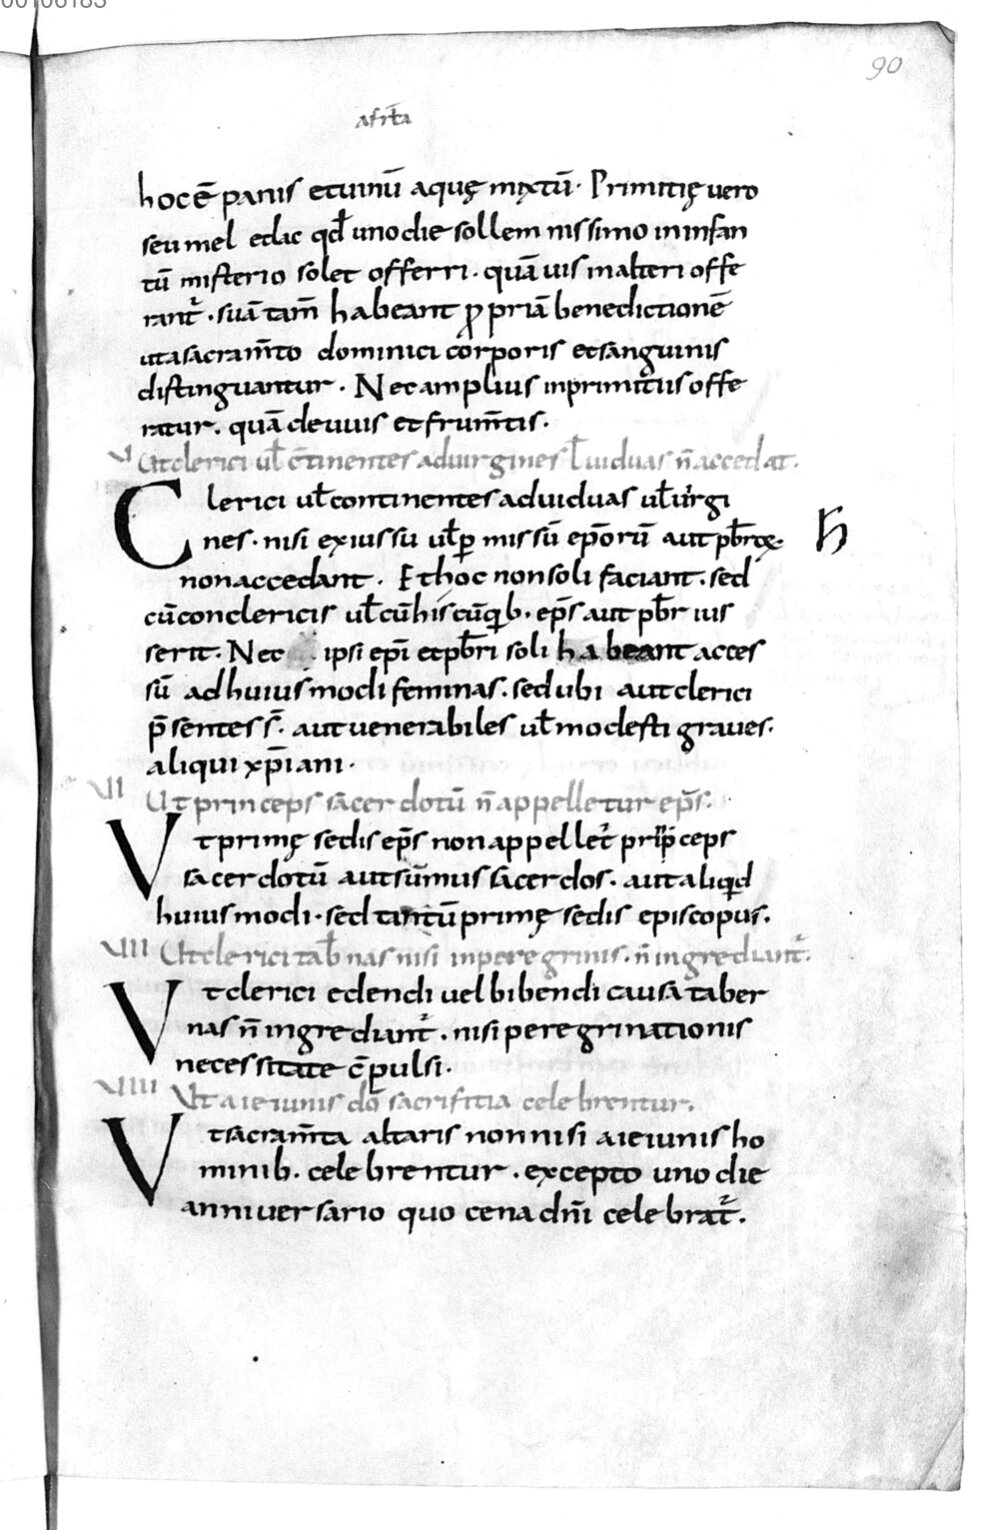 90
hoc ē panis et uinū aquę mixtū. Primitię uero
seu mel et lac qđ uno die sollemnissimo in infan
tū misterio solet offerri. quāuis in altari offe
rant̄. suā tam̄ habeant ꝓpriā benedictionē
ut a sacram̄to dominici corporis et sanguinis
distinguantur. Nec amplius in primitiis offe
ratur. quā de uuis et frum̄tis.
Ut clerici uł c̄tinentes ad uirgines ł uiduas n̄ accedat.
Clerici uł continentes ad uiduas uł uirgi
nes. nisi ex iussu uł ꝑmissū ep̄orū aut pb̄rorę.
non accedant. Et hoc non soli faciant. sed
cū conclericis uł cū his cū quib. ep̄s aut pb̄r ius
serit. Nec ipsi ep̄i et pb̄ri soli habeant acces
sū ad huiusmodi feminas. sed ubi aut clerici
p̄sentes s̄. aut uenerabiles uł modesti graues.
aliqui xp̄iani.
VII Ut princeps sacerdotū n̄ appelletur ep̄s.
Vt primę sedis ep̄s non appellet̄ princeps
sacerdotū aut sūmus sacerdos. aut aliquid
huiusmodi. sed tantū primę sedis episcopus.
VIII Ut clerici tab̄nas nisi in peregrinis. n̄ ingrediant̄.
Vt clerici edendi uel bibendi causa taber
nas n̄ ingrediant̄. nisi peregrinationis
necessitate c̄pulsi.
VIIII Ut a ieiunis dō sacrifitia celebrentur.
Vt sacram̄ta altaris non nisi a ieiunis ho
minib. celebrentur. excepto uno die
anniuersario quo cena dn̄i celebrat̄.